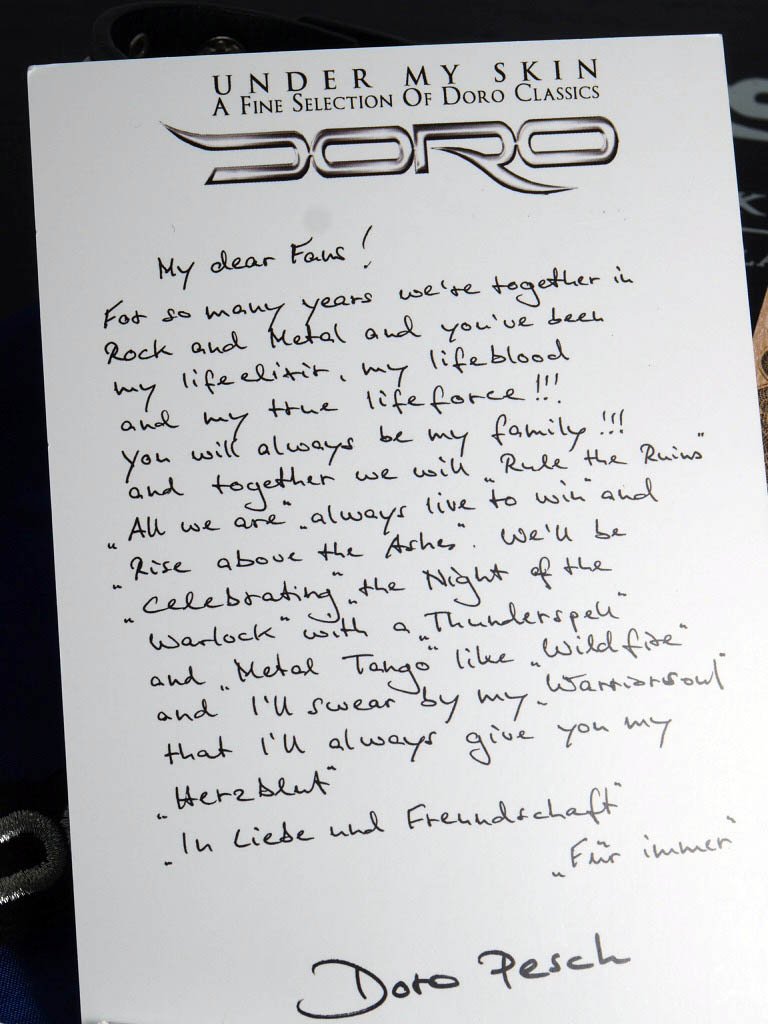 UNDER MY SKIN
A FINE SELECTION OF DORO CLASSICS
DORO
My dear Fans!
For so many years we're together in
Rock and Metal and you've been
my lifeelixir, my lifeblood
and my true lifeforce!!!
you will always be my family!!!
and together we will „Rule the Ruins"
„All we are" „always live to win" and
„Rise above the Ashes". We'll be
„Celebrating" „the Night of the
Warlock" with a „Thunderspell"
and „Metal Tango" like „Wildfire"
and I'll swear by my „Warriorsoul"
that I'll always give you my
„Herzblut"
„In Liebe und Freundschaft"
„Für immer"
Doro Pesch